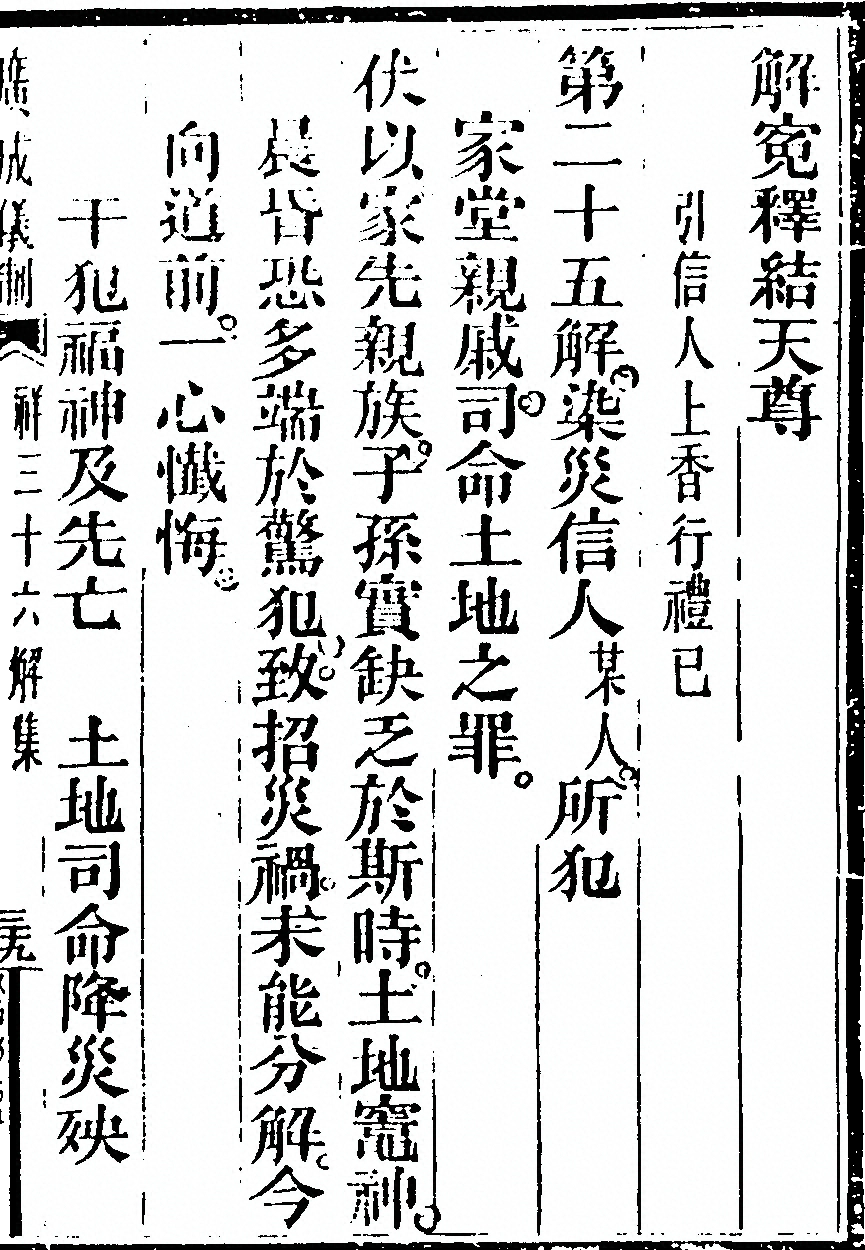 解𡨚釋結天尊
引信人上香行禮已
第二十五解。染災信人某人。所犯
家堂親戚司。命土地之罪。
伏以家先親族。子孫實缺乏於斯時。土地竈神。
晨昏恐多端於驚犯。致招災禍。未能分解。今
向道前。一心懺悔。
干犯福神及先亡　土地司命降災殃
廣成儀制
祥三十六解集
三九